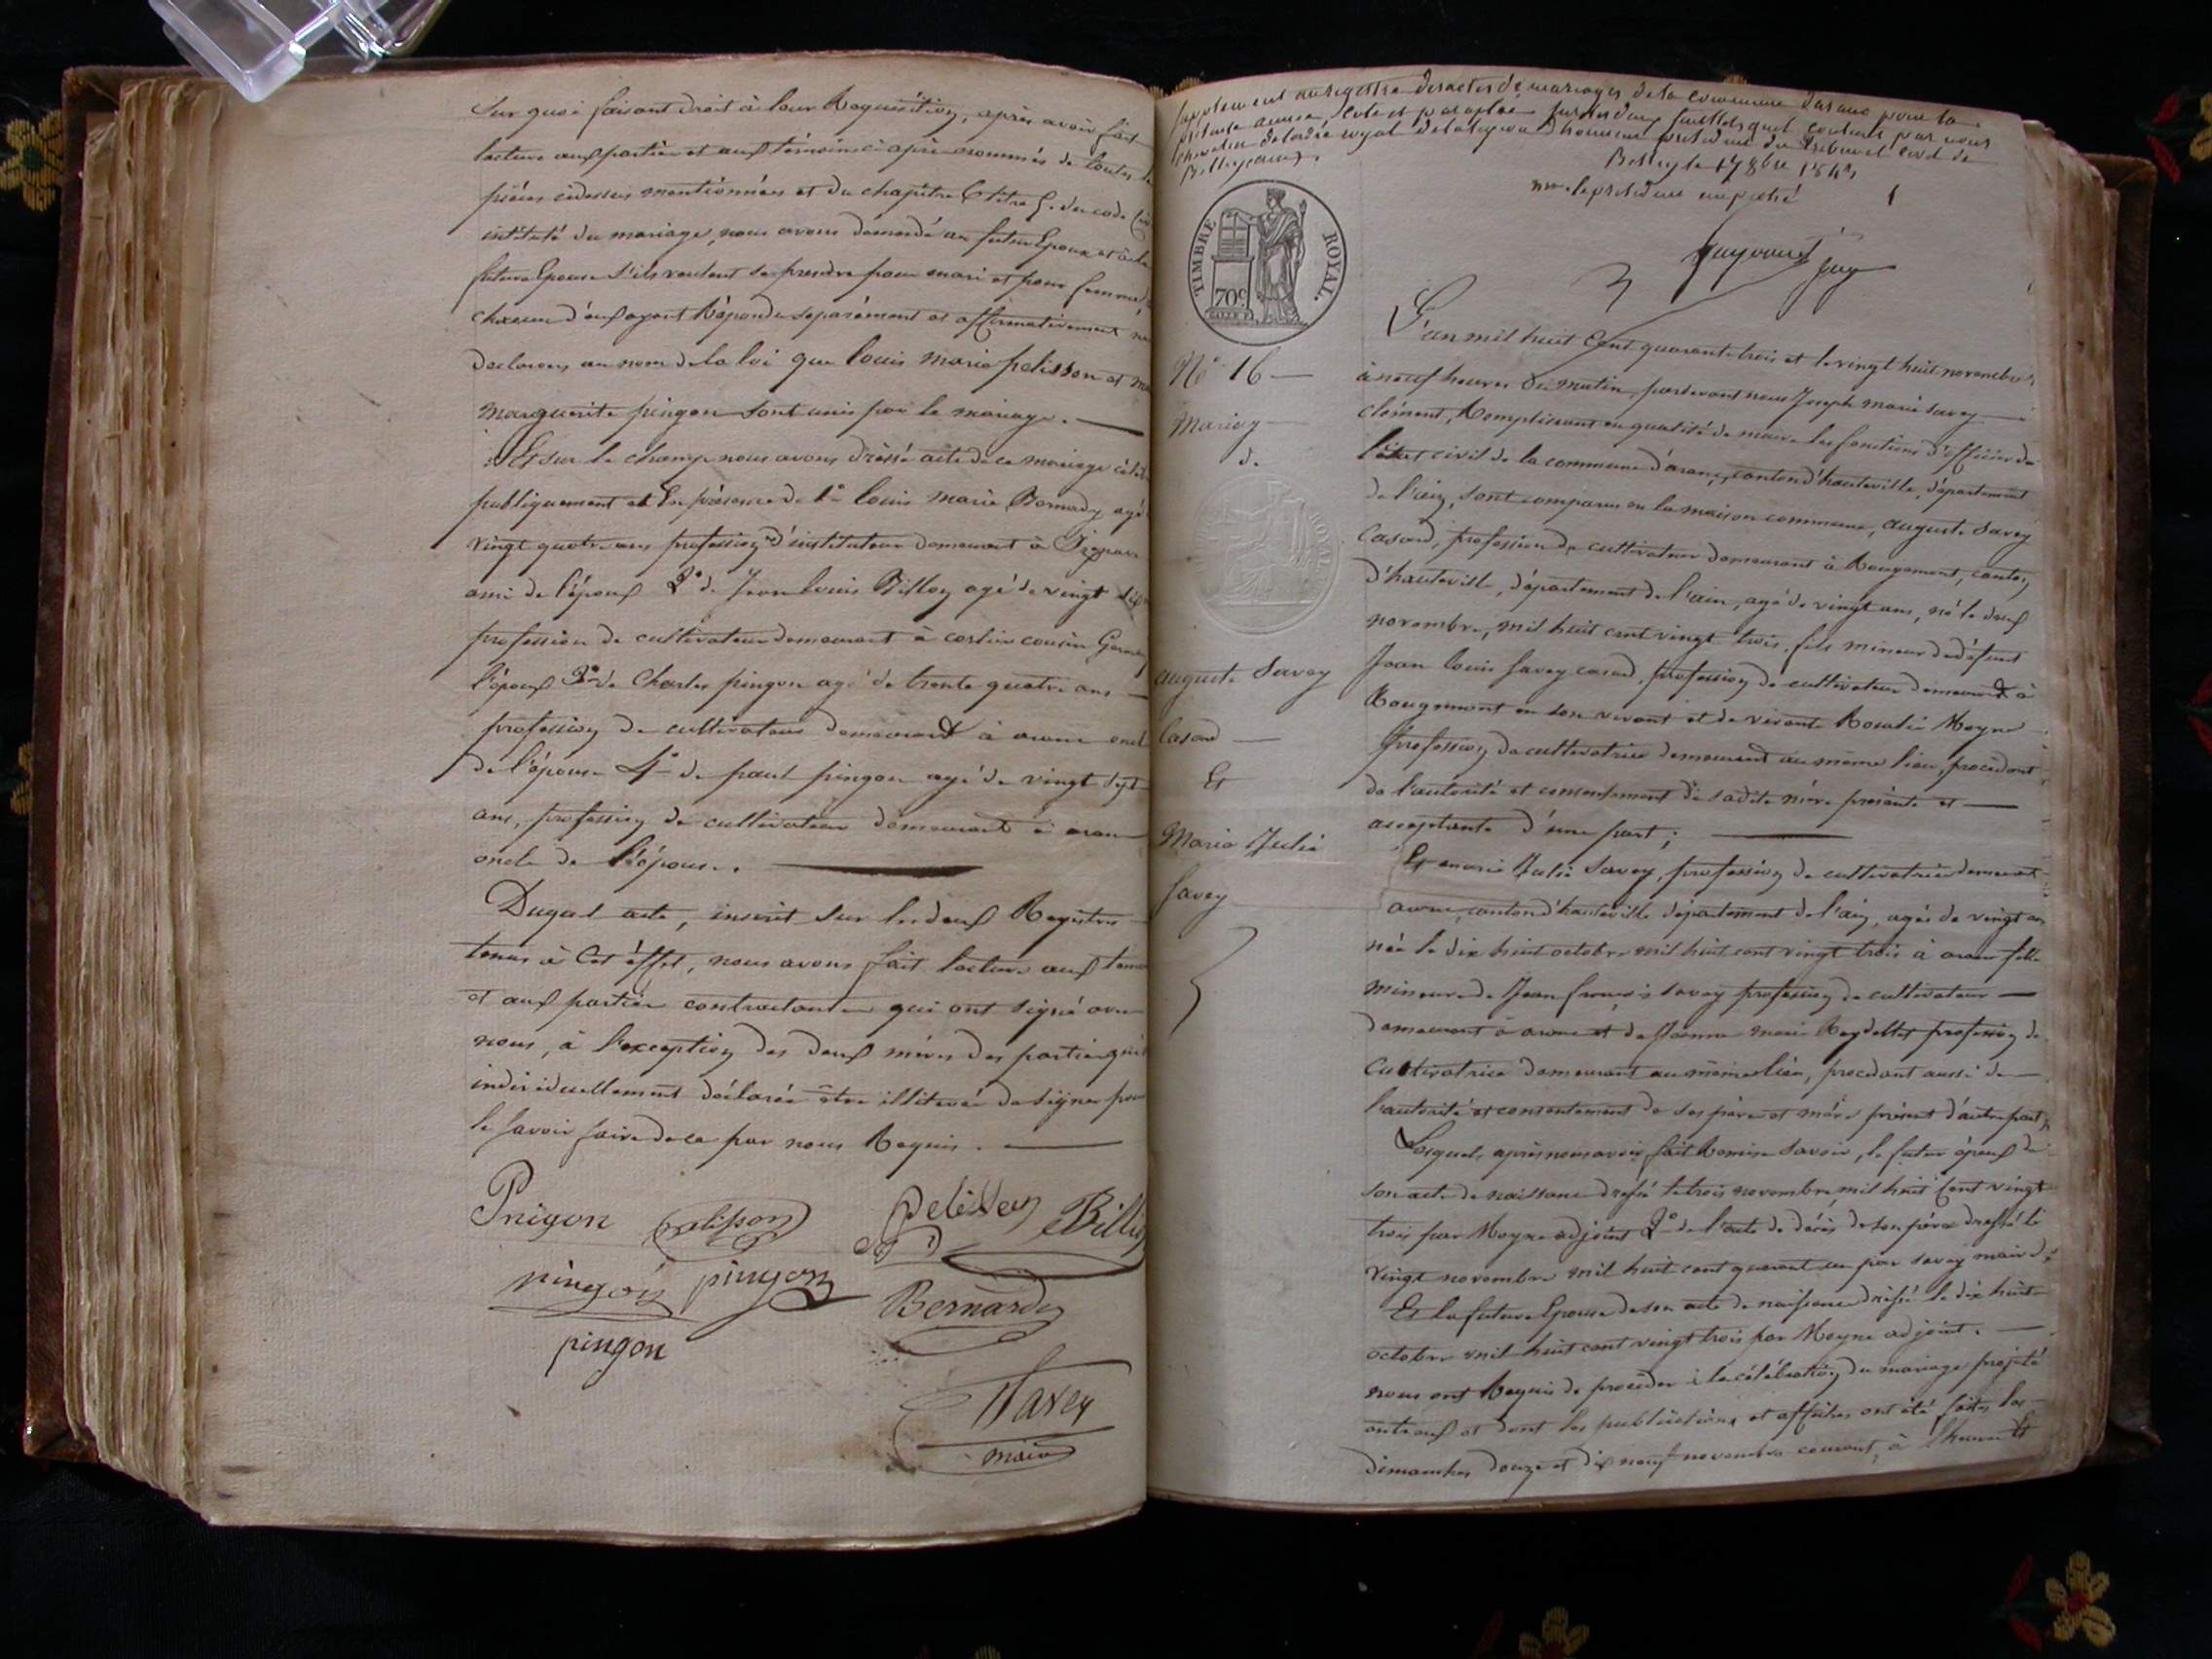 Sur quoi faisant droit à leur Requisition, après avoir fait
lecture aux parties et aux témoins ci après nommés de toutes les
pièces cidessus mentionnées et du chapitre 6 titre 5. du code civil
intitulé du mariage, nous avons demandé au futur Epoux et à la
future Epouse s'ils veulent se prendre pour mari et pour femme,
chacun d'eux ayant Répondu séparément et affirmativement nous
declarons au nom de la loi que louis marie pelisson et
marguerite pingon sont unis par le mariage.
Et sur le champ nous avons dréssé acte de ce mariage célébré
publiquement et En présence de 1° louis marie Bernardy agé
vingt quatre ans profession d'instituteur demeurant à
ami de l'époux 2° de Jean louis Billey agé de vingt
profession de cultivateur demeurant à corlier cousin Germain
l'époux 3° de Charles pingon agé de trente quatre ans
profession de cultivateur demeurant à aranc oncle
de l'épouse 4° de paul pingon agé de vingt sept
ans, profession de cultivateur demeurant à aranc
oncle de l'épouse.
Duquel acte, inscrit sur les deux Registres
tenus à Cet éffet, nous avons fait lecture aux temoins
et aux parties contractantes qui ont signé avec
nous, à l'exception des deux mères des parties qui
individuellement déclarée être illiterée de signer pour
le savoir faire de ce par nous Requis.
Pingon pelisson pelisson Billey
pingon pingon Bernardy
pingon
Savey
maire
Supplement au registre des actes de mariages de la commune d'aranc pour la
présente année, coté et paraphé sur les deux feuillets qu'il contient par nous
chevalier de l'ordre royal de la légion d'honneur président du tribunal civil de
Belley,
Belley le 17 8bre 1843
Mr. le président empeché
1
juge
TIMBRE ROYAL.
70c.
N° 16
Mariage
de
auguste Savey
Casard
Et
Marie Julie
Savey
L'an mil huit Cent quarante trois et le vingt huit novembre
à neuf heures du matin, pardevant nous Joseph marie Savey
clément, Remplissant en qualité de maire les fonctions d'officier de
l'état civil de la commune d'aranc, canton d'hauteville, département
de l'ain, sont comparus en la maison commune, auguste Savey
Casard, profession de cultivateur demeurant à Rougemont, canton
d'hauteville, département de l'ain, agé de vingt ans, né le deux
novembre, mil huit cent vingt trois, fils mineur de défunt
Jean louis Savey casard, profession de cultivateur demeurant à
Rougemont en son vivant et de vivante Rosalie Moyne
profession de cultivatrice demeurant au même lieu, procédant
de l'autorité et consentement de sadite mère présente et
acceptante d'une part;
Et marie Julie Savey, profession de cultivatrice demeurant
aranc, canton d'hauteville département de l'ain, agée de vingt ans
née le dix huit octobre mil huit cent vingt trois à aranc fille
mineure de Jean françois savey profession de cultivateur
demeurant à aranc et de Jeanne marie Reydellet profession de
Cultivatrice demeurant au même lieu, procédant aussi de
l'autorité et consentement de ses père et mère présent d'autre part;
Lesquels après nous avoir fait Remise Savoir, le futur époux de
son acte de naissance dressé le trois novembre mil huit Cent vingt
trois par Moyne adjoint 2° de l'acte de décès de son père dressé le
vingt novembre mil huit cent quarant un par savey maire d,
Et la future Epouse de son acte de naissance dréssé le dix huit
octobre mil huit cent vingt trois par Moyne adjoint.
nous ont Requis de procéder à la célébration du mariage projeté
entr'eux et dont les publications et affiches ont été faites les
dimanches douze et dix neuf novembre courant, à l'heure